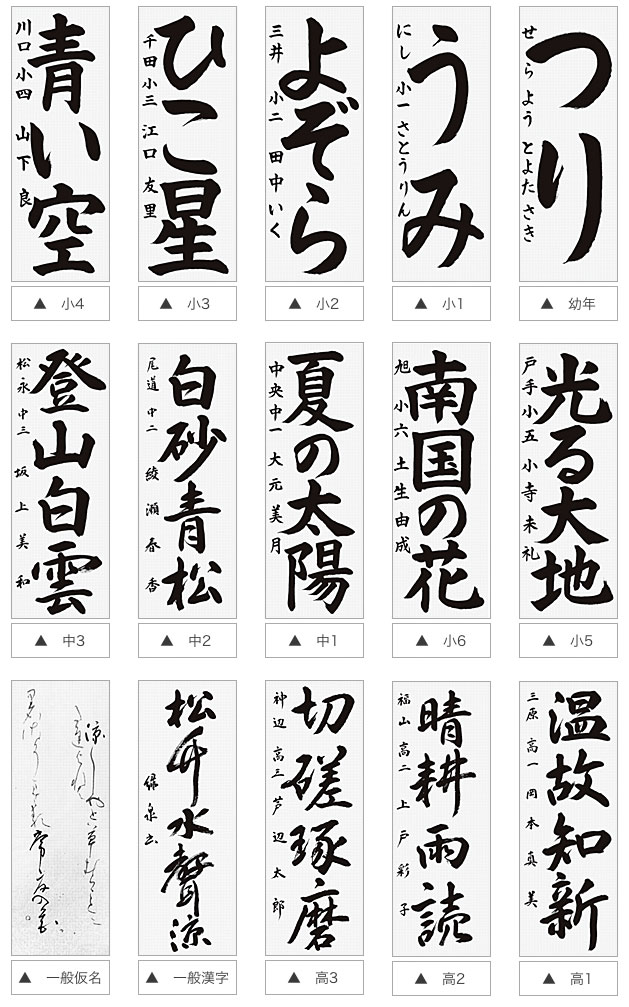 つり
せら よう とよた さき
▲ 幼年
うみ
にし 小一 さとう りん
▲ 小1
よぞら
三井 小二 田中 いく
▲ 小2
ひこ星
千田 小三 江口 友里
▲ 小3
青い空
川口 小四 山下 良
▲ 小4
光る大地
戸手 小五 小寺 未礼
▲ 小5
南国の花
旭 小六 土生 由成
▲ 小6
夏の太陽
中央 中一 大元 美月
▲ 中1
白砂青松
尾道 中二 綾瀬 春香
▲ 中2
登山白雲
松永 中三 坂上 美和
▲ 中3
温故知新
三原 高一 岡本 真美
▲ 高1
晴耕雨読
福山 高二 上戸 彩子
▲ 高2
切磋琢磨
神辺 高三 芦辺 太郎
▲ 高3
松弁水聲涼
▲ 一般漢字
▲ 一般仮名